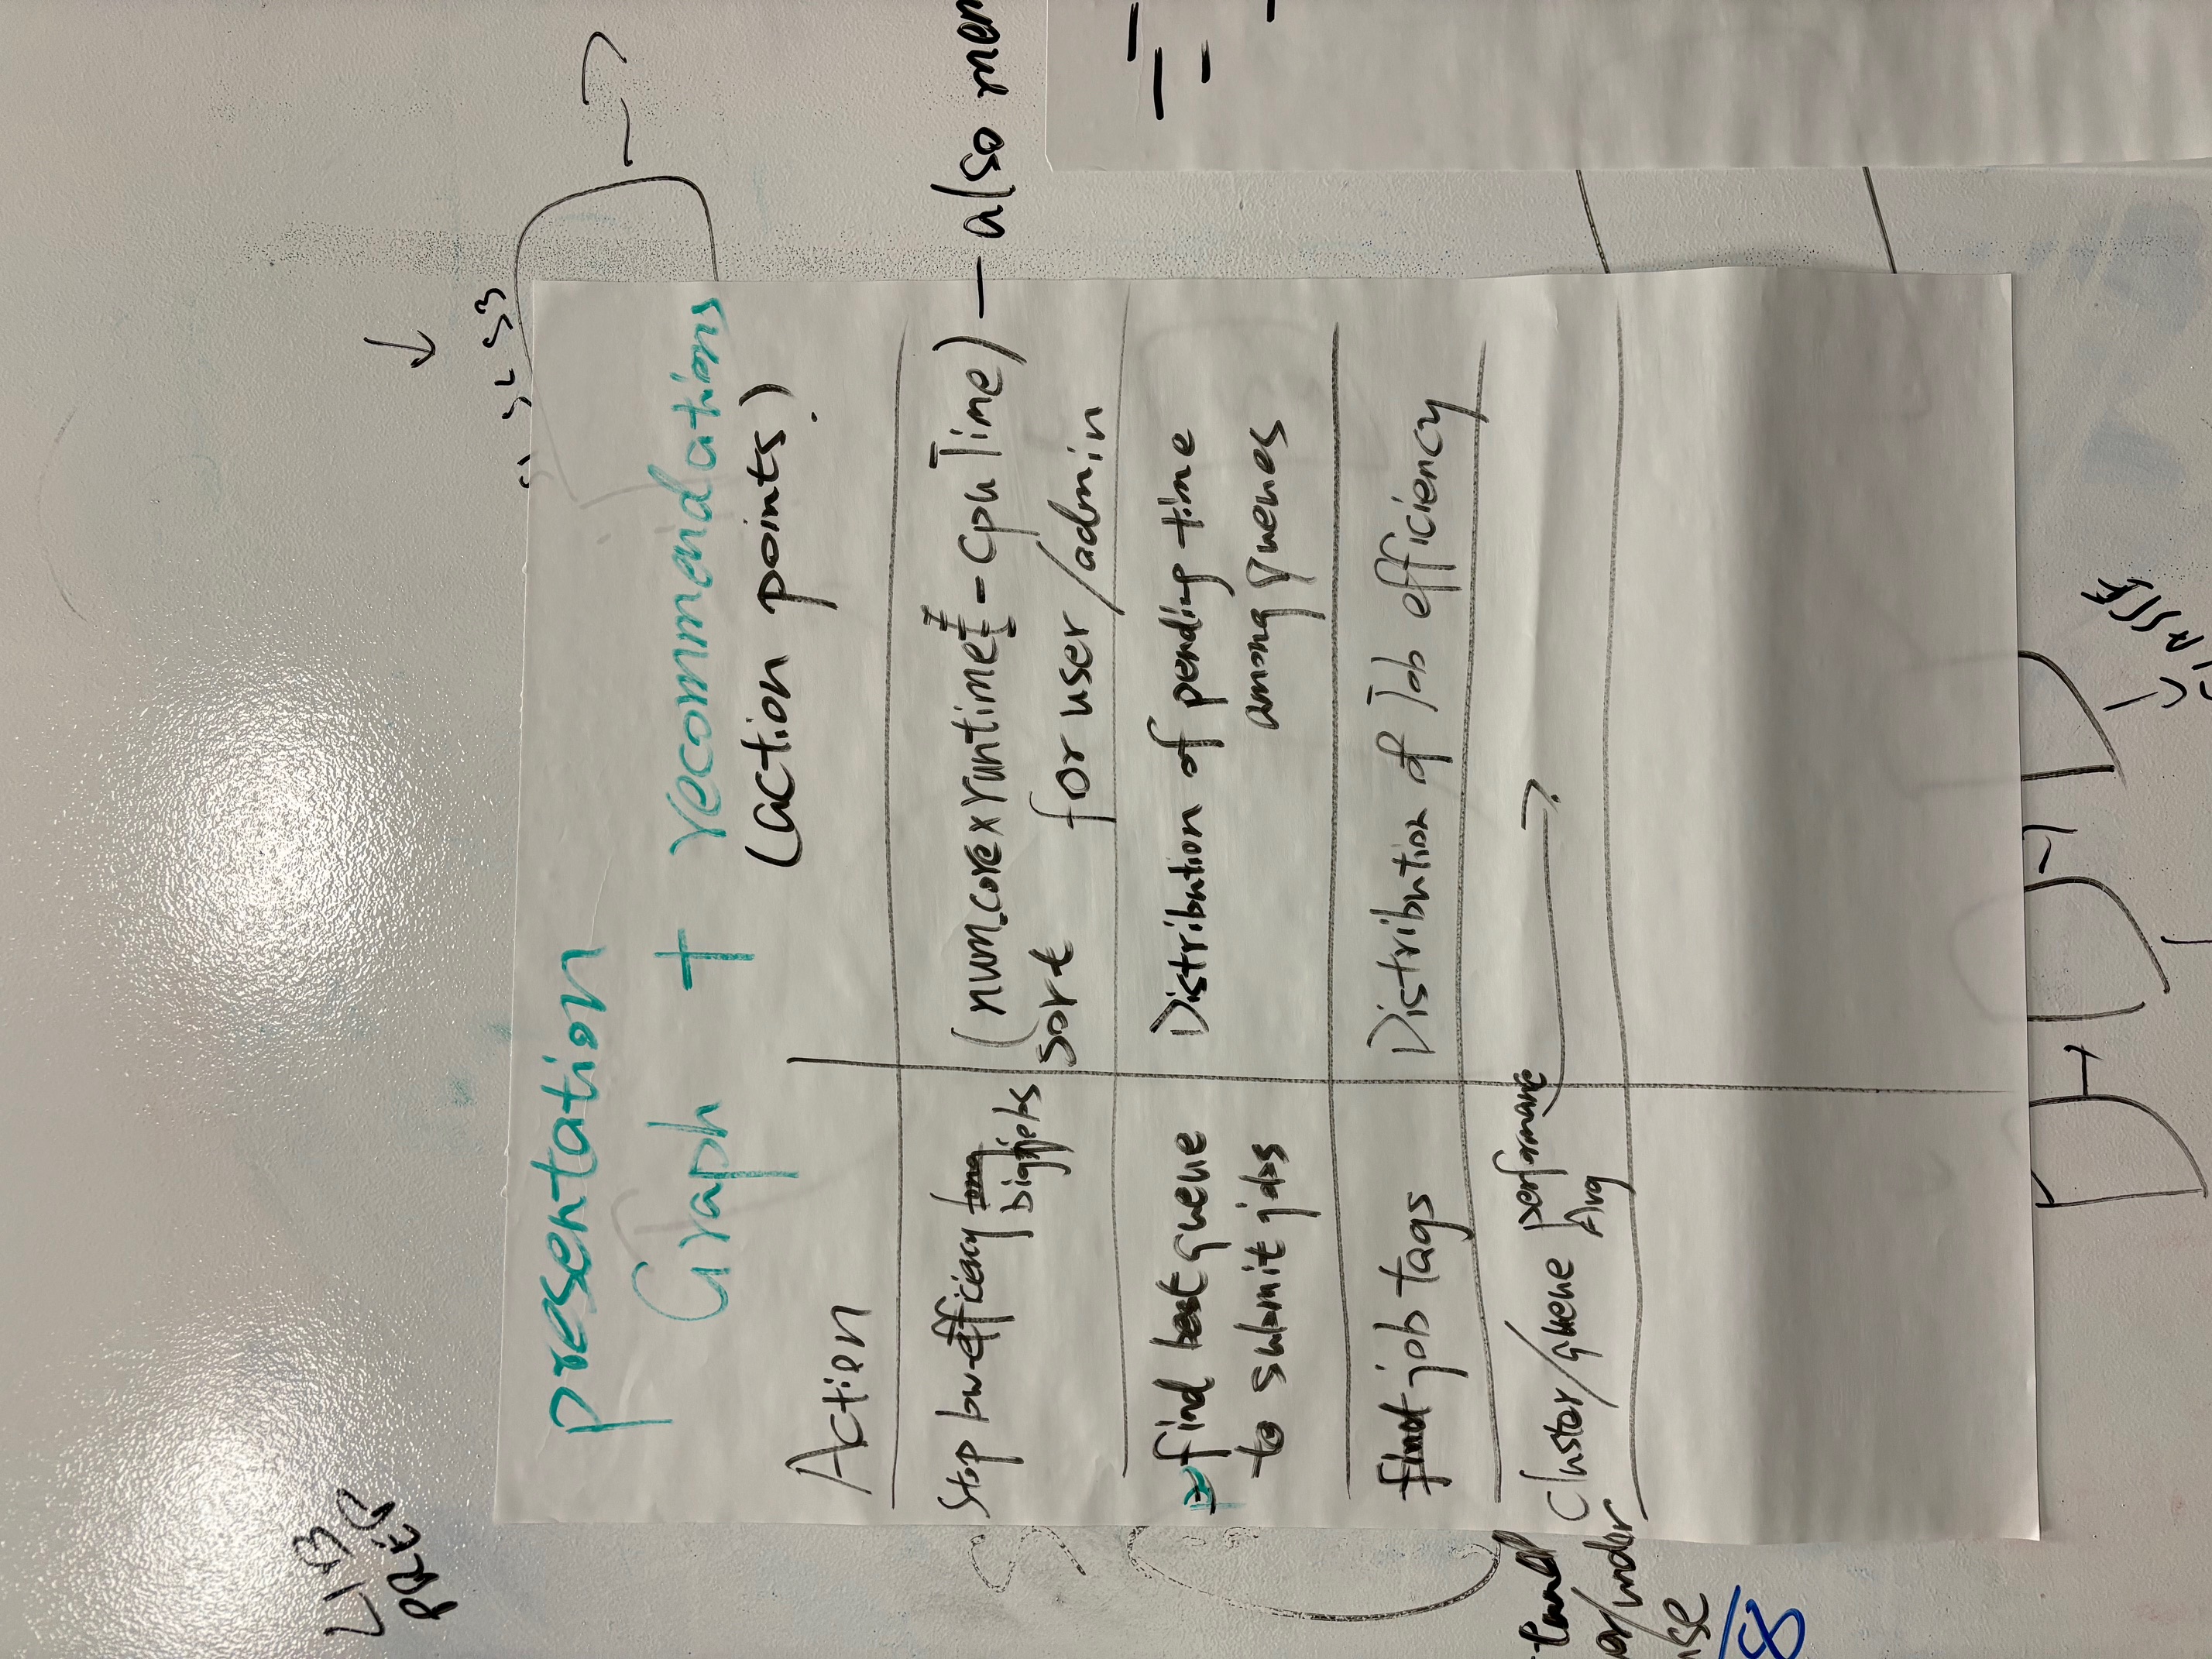 LIB
PREP
S3
presentation
Graph + recommendations
(action points)
Action
Stop low-efficiency long
big jobs
(num.core x runtime - cpu Time) — also mem
sort for user/admin
find best queue
to submit jobs
Distribution of pending time
among queues
find job tags
Distribution of Job efficiency
Cluster/queue performance
Avg
/under
use
8